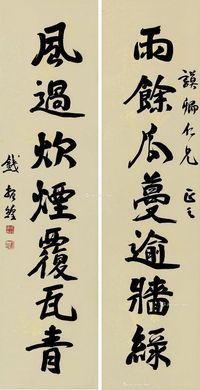 雨餘瓜蔓逾牆綠
謨卿仁兄 正之
風過炊煙覆瓦青
錢振鍠